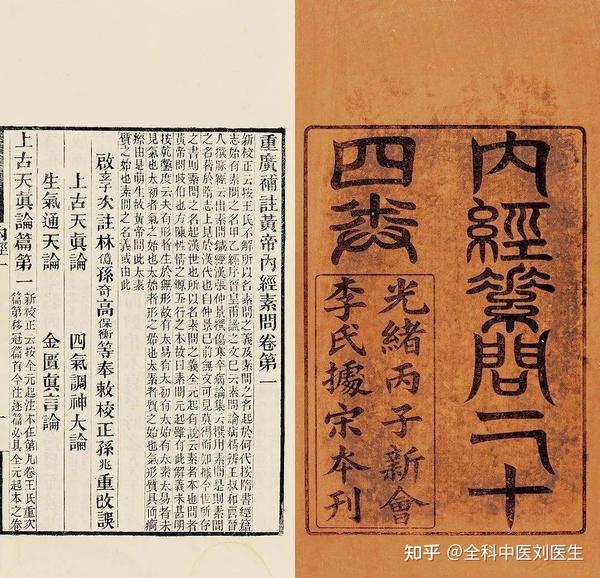 內經素問二十
四卷
光緒丙子新會
李氏據宋本刊
重廣補註黃帝內經素問卷第一
新校正云按王氏不解所以名素問之義及素問之名起於何代按隋書經籍
志始有素問之名甲乙經序晉皇甫謐之文已云素問論病精辨王叔和西晉
人撰脉經云出素問鍼經漢張仲景撰傷寒卒病論集云撰用素問是則素問
之名著於隋志上見於漢代也自仲景已前無文可見莫得而知據今世所存
之書則素問之名起漢世也所以名素問之義全元起有說云素者本也問者
黃帝問岐伯也方陳性情之源五行之本故曰素問元起雖有此解義未甚明
按乾鑿度云夫有形者生於無形故有太易有太初有太始有太素太易者未
見氣也太初者氣之始也太始者形之始也太素者質之始也氣形質具而痾
瘵由是萌生故黃帝問此太素
質之始也素問之名義或由此
啟玄子次註林億孫奇高保衡等奉敕校正孫兆重改誤
上古天眞論 四氣調神大論
生氣通天論 金匱眞言論
上古天眞論篇第一
新校正云按全元起注本在第九卷王氏重次
篇第移冠篇首今注逐篇必具全元起本之卷
知乎 @全科中医刘医生